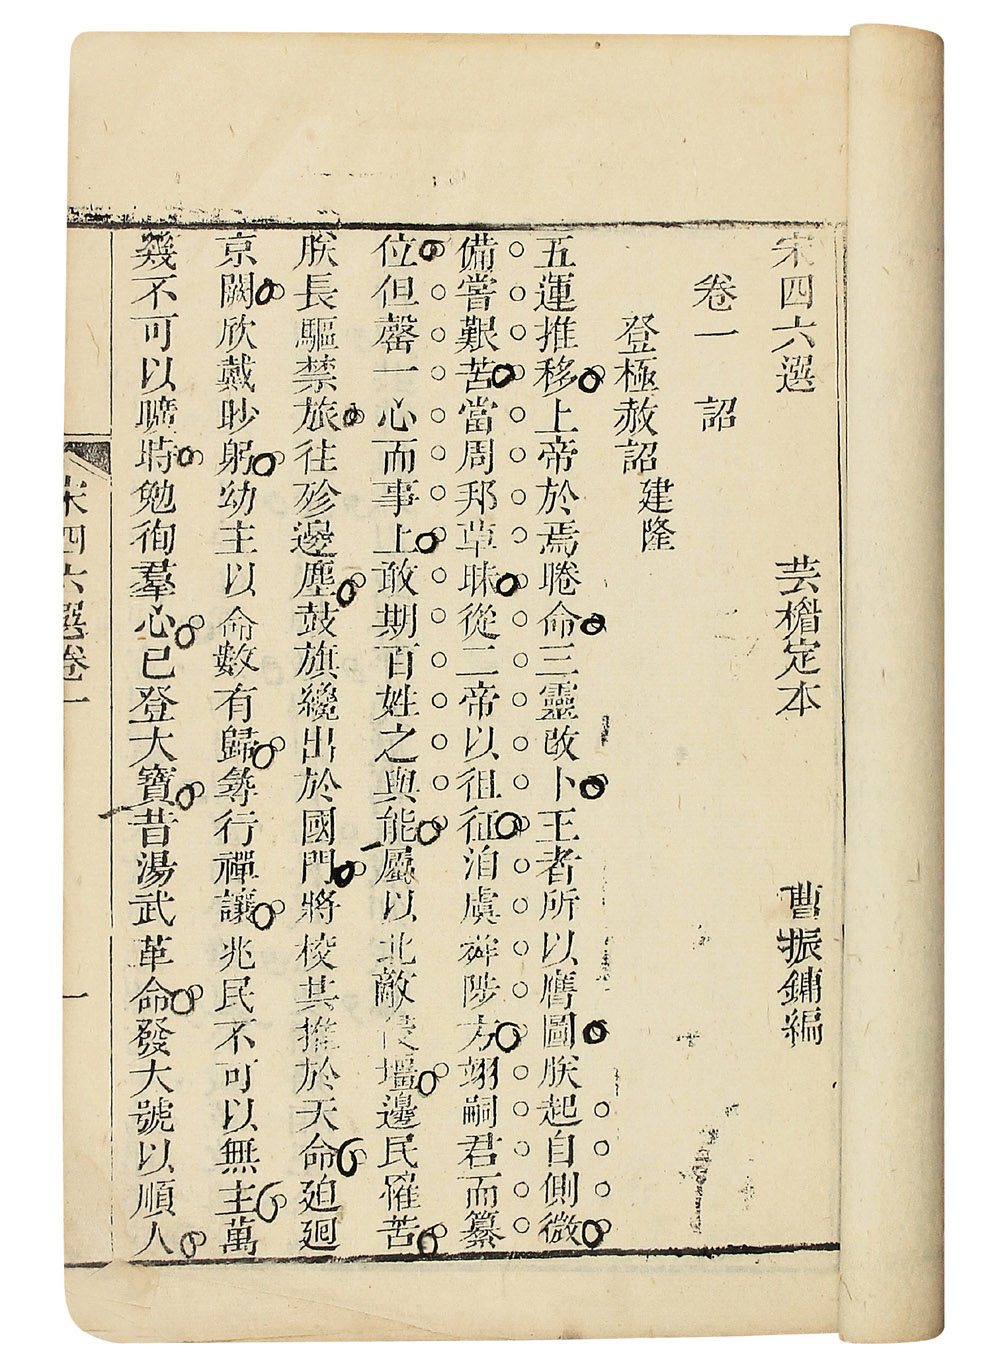 宋四六選 芸楣定本 曹振鏞編
卷一 詔
登極赦詔建隆
五運推移上帝於焉睠命三靈改卜王者所以膺圖朕起自側微
備嘗艱苦當周邦草昧從二帝以徂征洎虞舜陟方翊嗣君而纂
位但罄一心而事上敢期百姓之與能屬以北敵侵壃邊民罹苦
朕長驅禁旅往殄邊塵鼓旗纔出於國門將校共推於天命廹廻
京闕欣戴眇躬幼主以命數有歸尋行禪讓兆民不可以無主萬
幾不可以曠時勉徇羣心已登大寶昔湯武革命發大號以順人
宋四六選卷一
一